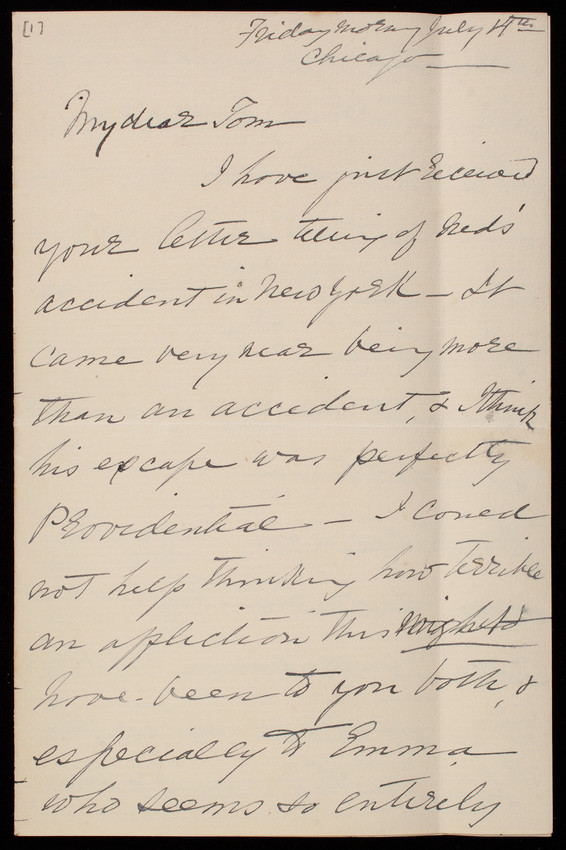 [1]
Friday Morng July 4th
Chicago
My dear Tom
I have just received
your letter telling of Neds'
accident in New York - It
came very near being more
than an accident, & I think
his excape was perfectly
Providential - I coued
not help thinking how terrible
an affliction this might
have been to you both, &
especially to Emma
who seems so entirely